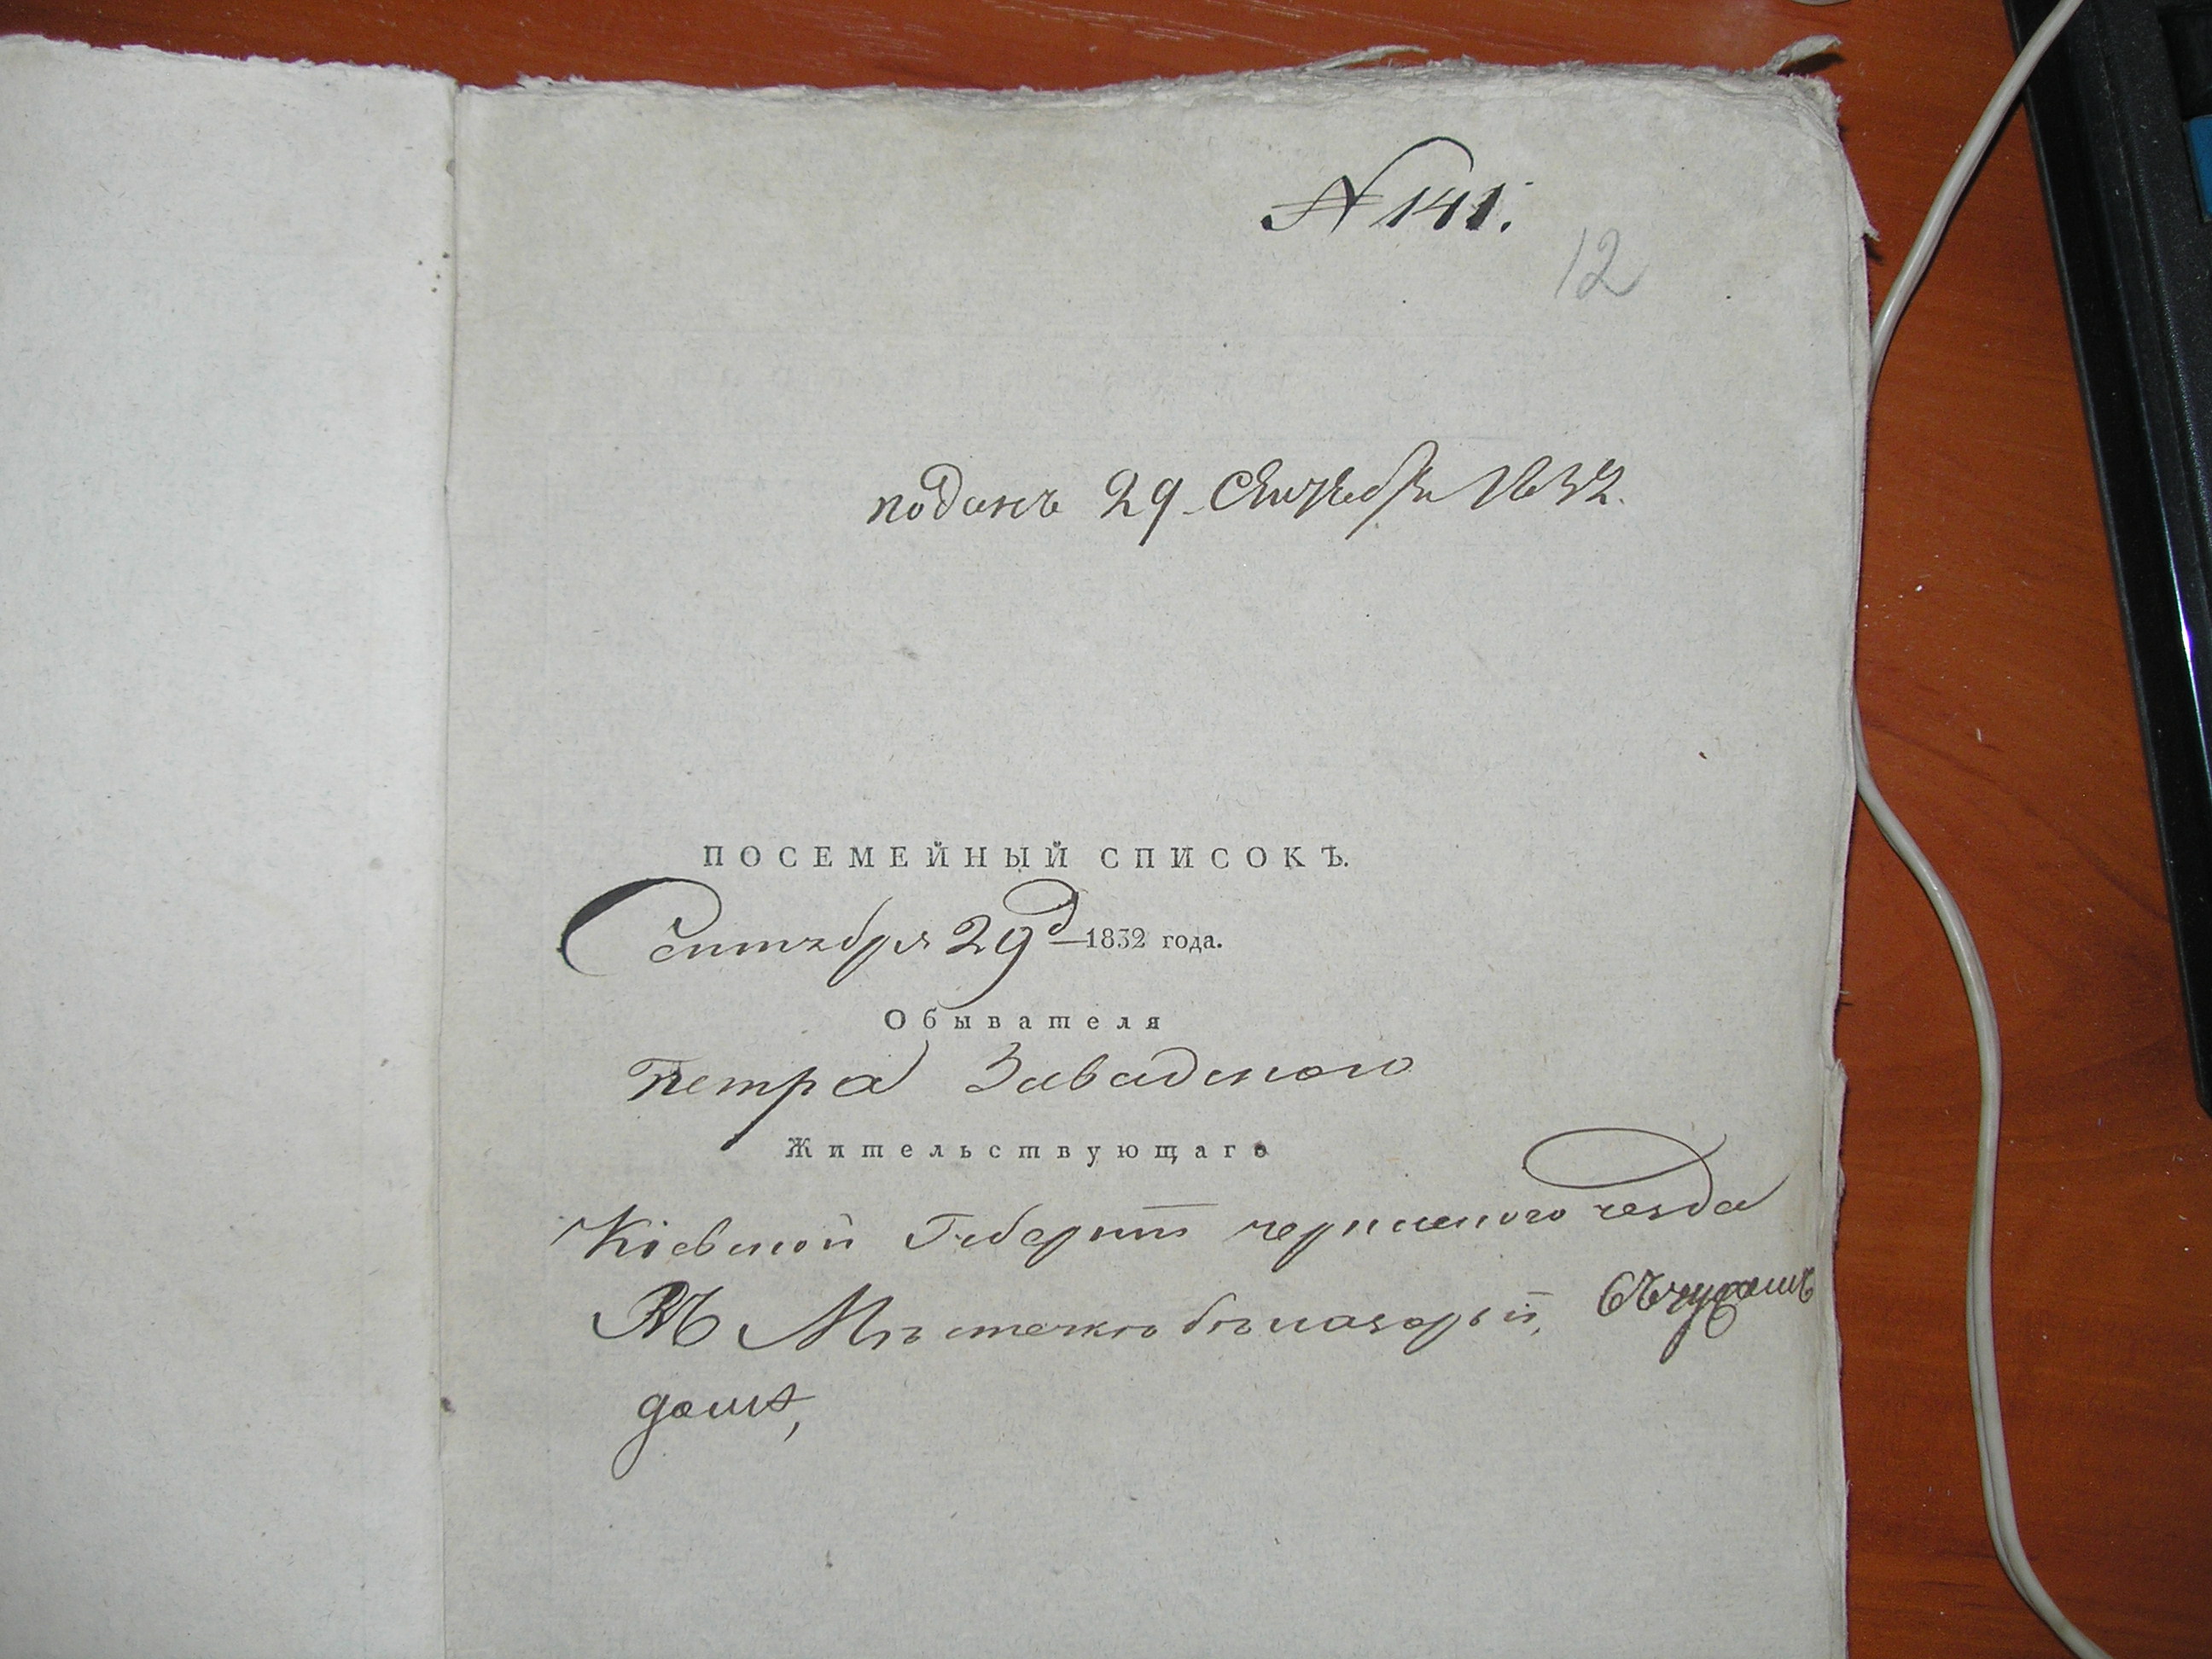 N 141.
12
поданъ 29 Сентября 1832.
ПОСЕМЕЙНЫЙ СПИСОКЪ.
Сентября 29 д 1832 года.
Обывателя
Петра Завадского
Жительствующаго
Кіевской Губерніи черкаского уезда
Въ Местечке белазорьи, въчужомъ
доме,